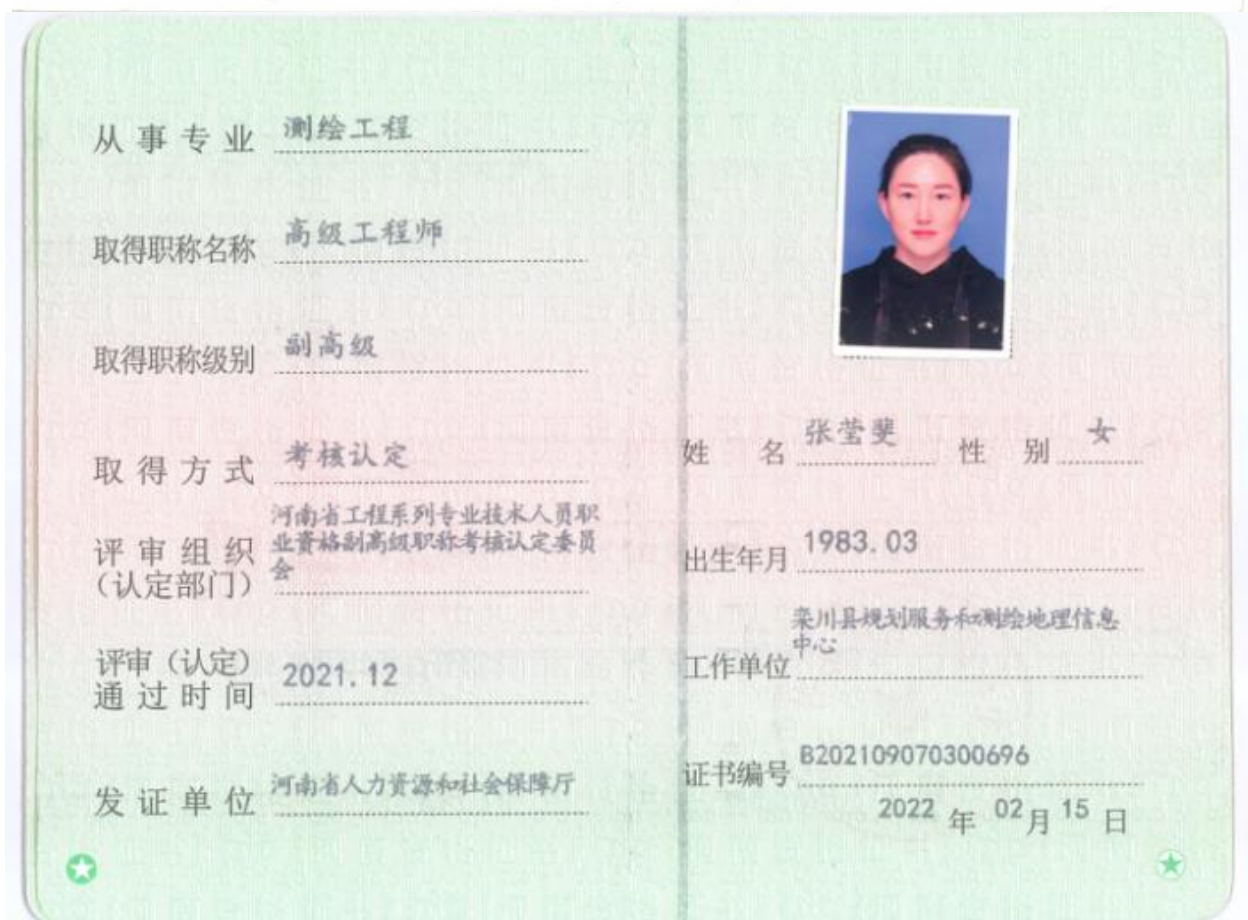 从事专业 测绘工程
取得职称名称 高级工程师
取得职称级别 副高级
取得方式 考核认定
评审组织
（认定部门）
河南省工程系列专业技术人员职
业资格副高级职称考核认定委员
会
评审（认定）
通过时间
2021.12
发证单位 河南省人力资源和社会保障厅
姓名 张莹斐 性别 女
出生年月 1983.03
工作单位
栾川县规划服务和测绘地理信息
中心
证书编号 B202109070300696
2022 年 02 月 15 日